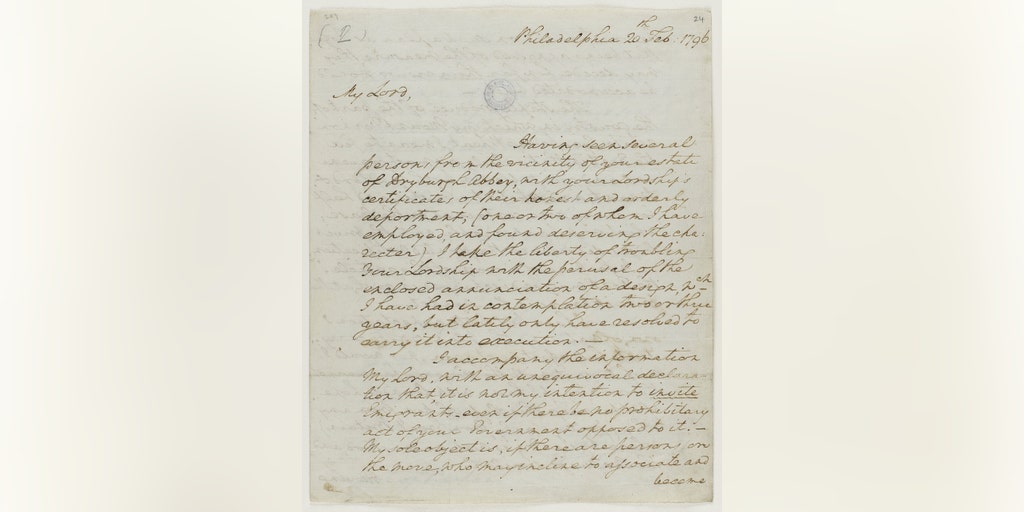 24
Philadelphia 20th Feb. 1796
My Lord,
Having seen several
persons from the vicinity of your estate
of Dryburgh Abbey, with your Lordship's
certificates of their honest and orderly
deportment; (one or two of whom I have
employed, and found deserving the cha-
racter) I take the liberty of troubling
Your Lordship with the perusal of the
enclosed annunciation of a design, wch
I have had in contemplation two or three
years, but lately only have resolved to
carry it into execution.—
I accompany the information
My Lord, with an unequivocal declara-
tion that, it is not my intention to invite
Emigrants, even if there be no prohibitary
act of your Government opposed to it.—
My sole object is, if there are persons, on
the move, who may incline to associate and
become